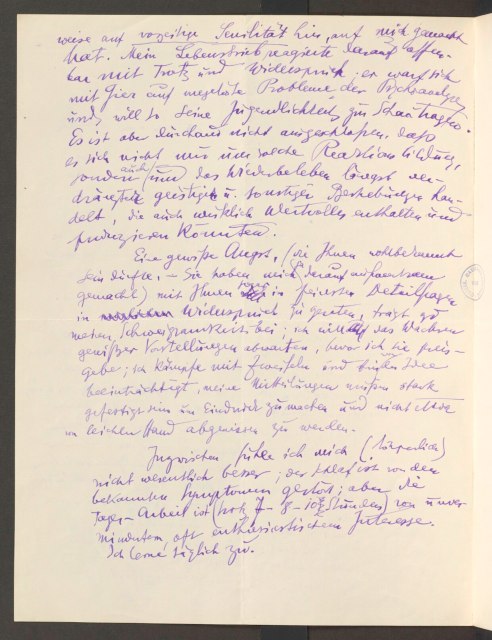 weise auf vorzeitige Senilität hin, auf mich gemacht
hat. Mein Lebenstrieb reagierte darauf offen-
bar mit Trotz und Widerspruch; er warf sich
mit Gier auf ungelöste Probleme der Psychoanalyse
und will so seine Jugendlichkeit zur Schau tragen.
Es ist aber durchaus nicht ausgeschlossen, dass
es sich nicht nur um solche Reaktionsbildung,
sondern auch um das Wiederbeleben längst ver-
drängter geistiger u. sonstiger Bestrebungen han-
delt, die auch wirklich Wertvolles enthalten und
produzieren könnten.
Eine gewisse Angst, (die Ihnen wohlbekannt
sein dürfte, – Sie haben mich darauf aufmerksam
gemacht) mit Ihnen in feinsten Detailfragen
in Widerspruch zu geraten, trägt zu
meiner Schweigsamkeit bei; ich will das Wachsen
gewisser Vorstellungen abwarten, bevor ich sie preis-
gebe; ich kämpfe mit Zweifeln und Idee
beeinträchtigt, meine Mitteilungen müssen stark
gefestigt sein um Eindruck zu machen und nicht etwa
von leichter Hand abgewiesen zu werden.
Inzwischen fühle ich mich (körperlich)
nicht wesentlich besser; der Schlaf ist von den
bekannten Symptomen gestört; aber die
Tages-Arbeit ist (trotz Stunden) von unver-
mindertem oft enthusiastischem Interesse.
Ich lerne täglich zu.